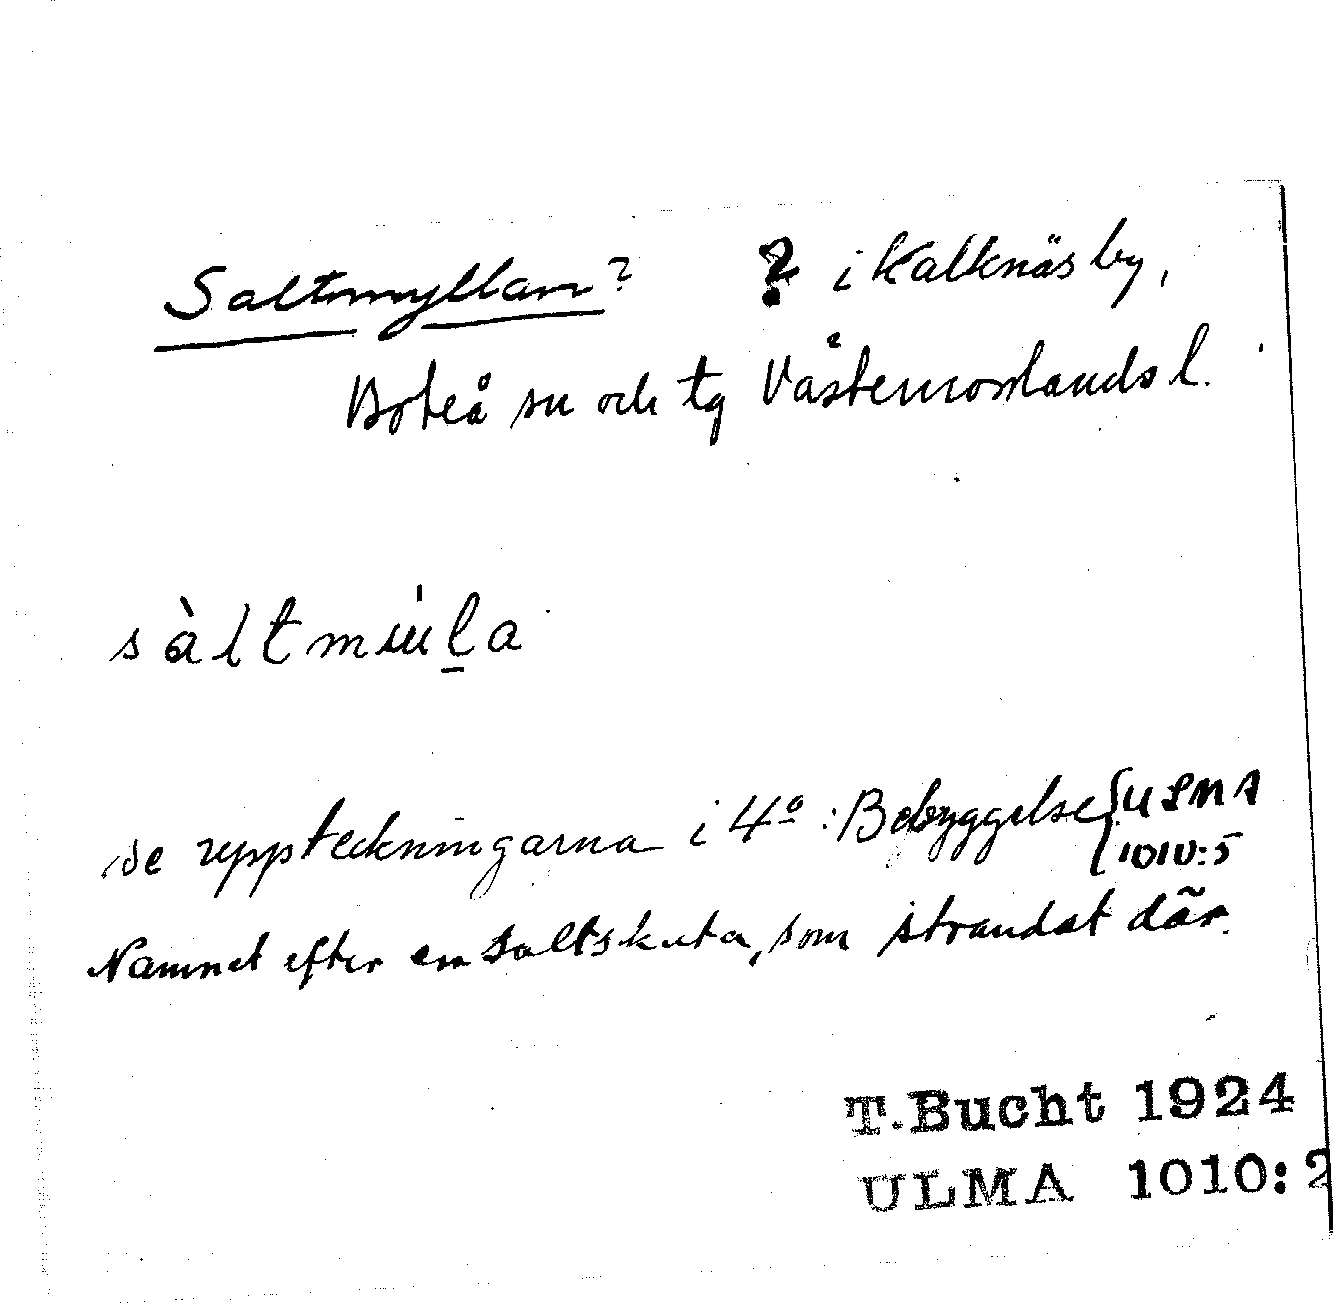 Saltmyllan? ? i Kalknäs by,
Boteå sn och tg Västernorrlands l.
sàltmu̇l̠a
se uppteckningarna i 4º: Bebyggelse { ULMA
1010:5
Namnet efter en saltskuta, som strandat där.
T. Bucht 1924
ULMA 1010:2